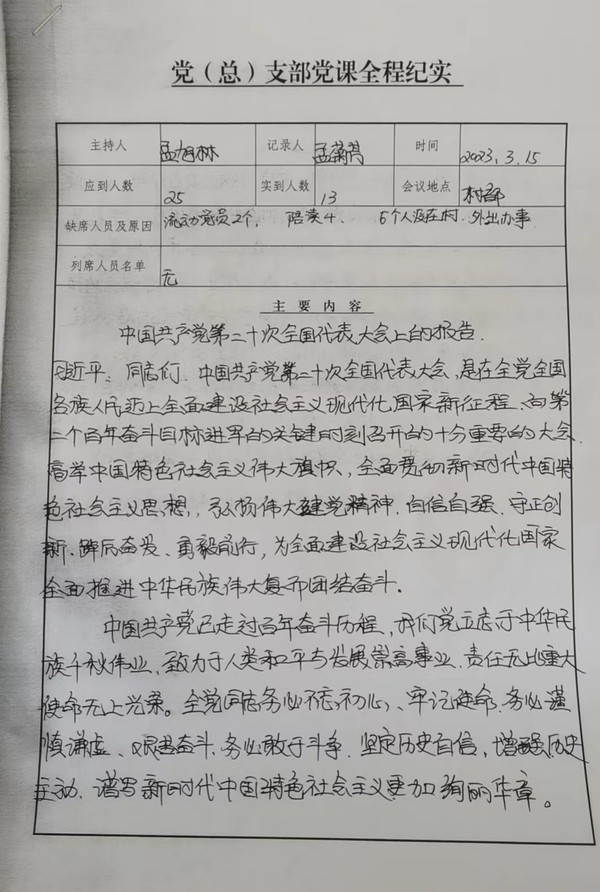 党（总）支部党课全程纪实
主持人 孟旭林 记录人 孟 时间 2023.3.15
应到人数 25 实到人数 13 会议地点 村部
缺席人员及原因 流动党员2个， 陪读4、 6个人没在村、外出办事
列席人员名单 无
主要内容
中国共产党第二十次全国代表大会上的报告.
习近平：同志们、中国共产党第二十次全国代表大会、是在全党全国
各族人民迈上全面建设社会主义现代化国家新征程、向第
二个百年奋斗目标进军的关键时刻召开的十分重要的大会.
高举中国特色社会主义伟大旗帜、全面贯彻新时代中国特
色社会主义思想，弘扬伟大建党精神、自信自强、守正创
新、踔厉奋发、勇毅前行，为全面建设社会主义现代化国家
全面推进中华民族伟大复兴团结奋斗.
中国共产党已走过百年奋斗历程、我们党立志于中华民
族千秋伟业、致力于人类和平与发展崇高事业、责任无比重大
使命无上光荣。全党同志务必不忘初心、牢记使命、务必谨
慎谦虚、艰苦奋斗、务必敢于斗争、坚定历史自信，增强历史
主动、谱写新时代中国特色社会主义更加绚丽华章。